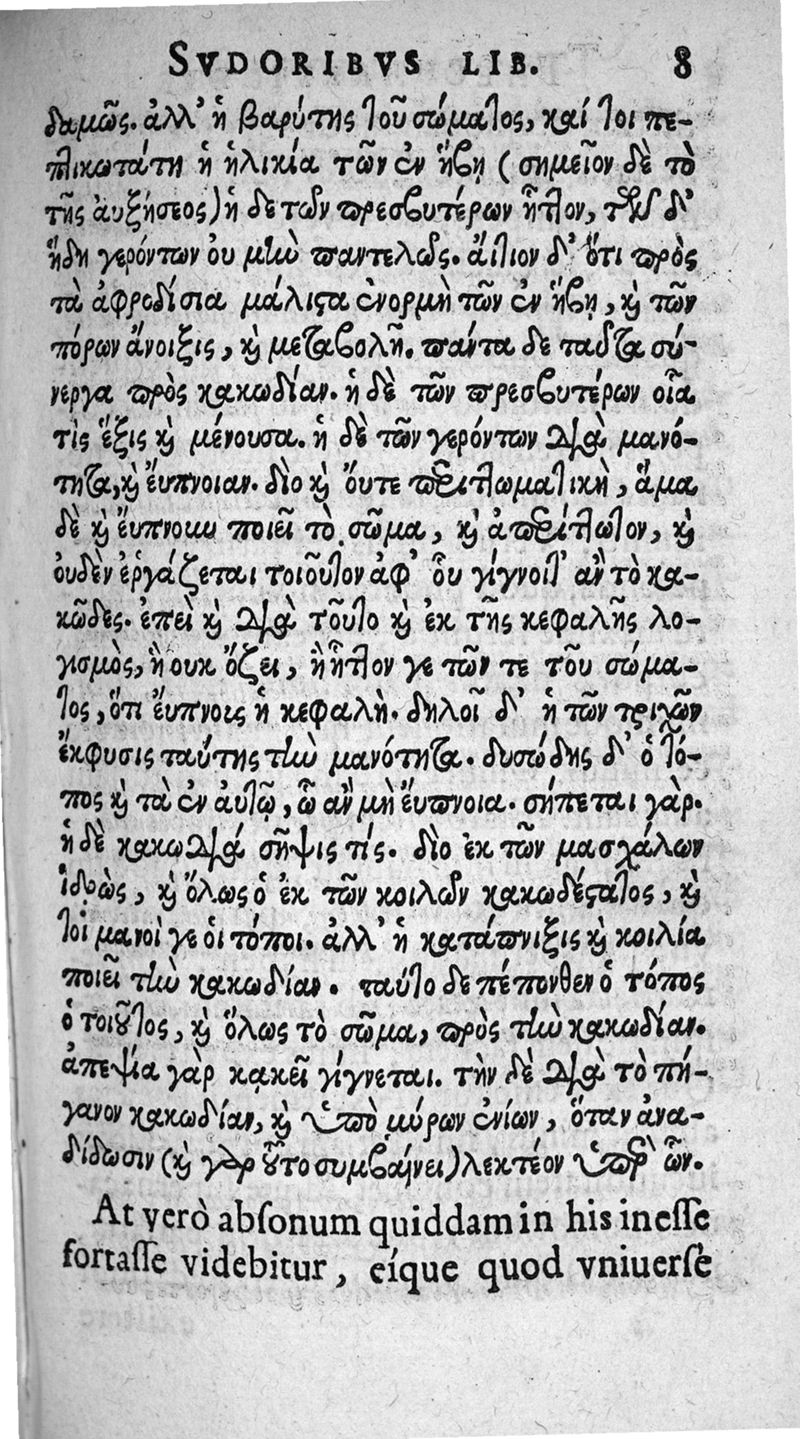 SVDORIBVS LIB. 8
δαμῶς. ἀλλ' ἡ βαρύτης τοῦ σώματος, καί τοι πε-
πλικωτάτη ἡ ἡλικία τῶν ἐν ἥβῃ (σημεῖον δὲ τὸ
τῆς ἀυξήσεος) ἡ δὲ τῶν πρεσβυτέρων ἧτλον, τῶν δ'
ἤδη γερόντων ου μὴν παντελῶς. ἄιτιον δ' ὅτι πρὸς
τὰ ἀφροδίσια μάλιστα ἐνορμὴ τῶν ἐν ἥβῃ, καὶ τῶν
πόρων ἄνοιξις, καὶ μεταβολῆ. πάντα δε ταῦτα σύ-
νεργα πρὸς κακωδίαν. ἡ δὲ τῶν πρεσβυτέρων οἷα
τὶς ἕξις καὶ μένουσα. ἡ δὲ τῶν γερόντων διὰ μανό-
τητα, καὶ ἔυπνοιαν. διο καὶ ὄυτε περιτλωματικὴ, ἅμα
δὲ καὶ ἔυπνουν ποιεῖ τὸ σῶμα, καὶ ἀπερίτλωτον, καὶ
ουδὲν ἐργάζεται τοιοῦτον ἀφ' οὗ γίγνοιτ' ἂν τὸ κα-
κῶδες. ἐπεὶ καὶ διὰ τοῦτο καὶ ἐκ τῆς κεφαλῆς λο-
γισμὸς, ἢ ουκ ὄζει, ἢ ἧτλον γε τῶν τε τοῦ σώμα-
τος, ὅτι ἔυπνους ἡ κεφαλὴ. δηλοῖ δ' ἡ τῶν τριχῶν
ἔκφυσις ταύτης τὴν μανότητα. δυσώδης δ' ὁ τό-
πος καὶ τὰ ἐν ἀυτῷ, ὧ ἂν μὴ ἔυπνοια. σήπεται γὰρ.
ἡ δὲ κακωδιά σῆψις τίς. διο ἐκ τῶν μασχάλων
ἱδρὼς, καὶ ὅλως ὁ ἐκ τῶν κοιλῶν κακωδέστατος, καὶ
τοί μανοὶ γε ὁι τόποι. ἀλλ' ἡ κατάπνιξις καὶ κοιλία
ποιεῖ τὴν κακωδίαν. ταύτο δε πέπονθεν ὁ τόπος
ὁ τοιοῦτος, καὶ ὅλως τὸ σῶμα, πρὸς τὴν κακωδίαν.
ἀπεψία γὰρ κακεῖ γίγνεται. τὴν δὲ διὰ τὸ πή-
γανον κακωδίαν, καὶ ὑπὸ μύρων ἐνίων, ὅταν ἀνα-
δίδωσιν (καὶ γὰρ οὗτο συμβαίνει) λεκτέον ὑπὲρ ὧν.
At verò absonum quiddam in his inesse
fortasse videbitur, eíque quod vniuersè